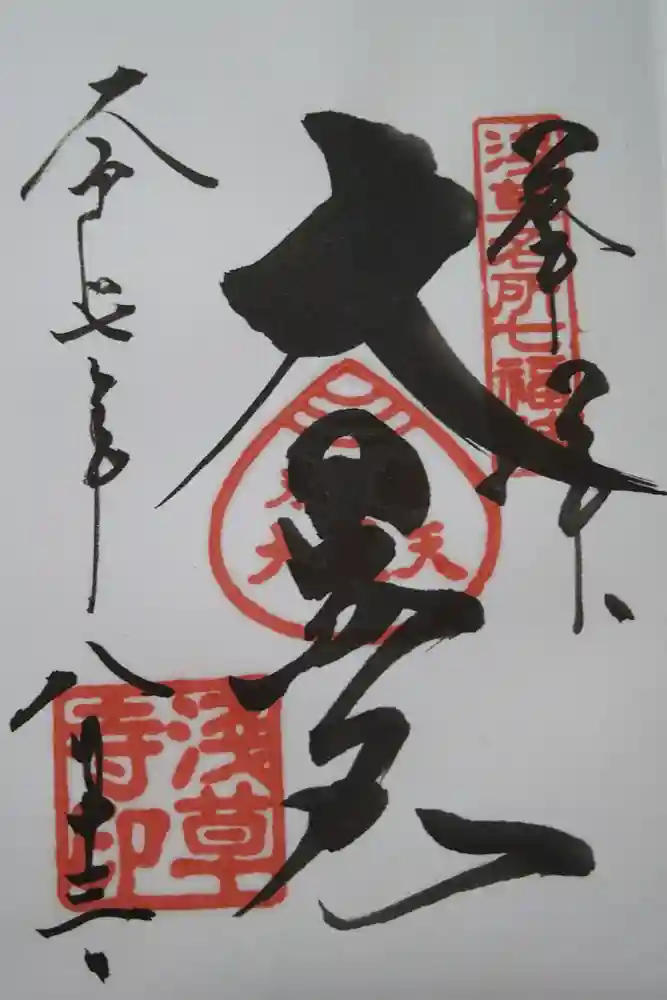 奉拝
浅草名所七福神
大黒天
令和七年
八月十三日
浅草
寺印